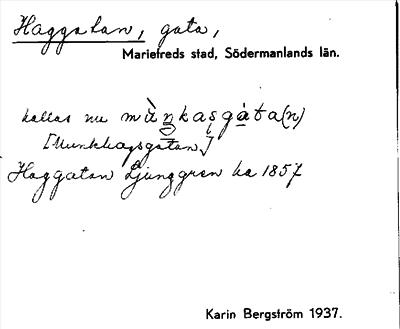 Haggatan, gata,
Mariefreds stad, Södermanlands län.
kallas nu mùŋkasgàta(n)
[Munkhagsgatan]
Haggatan Ljunggren ka 1857
Karin Bergström 1937.